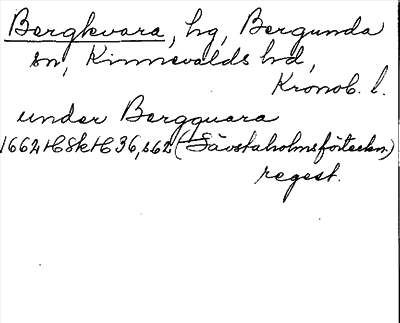 Bergkvara, hg, Bergunda
sn, Kinnevalds hd,
Kronob. l.
under Bergquara
1662 HSH 36, s62 (Sävstaholmsförteckn.)
regest.